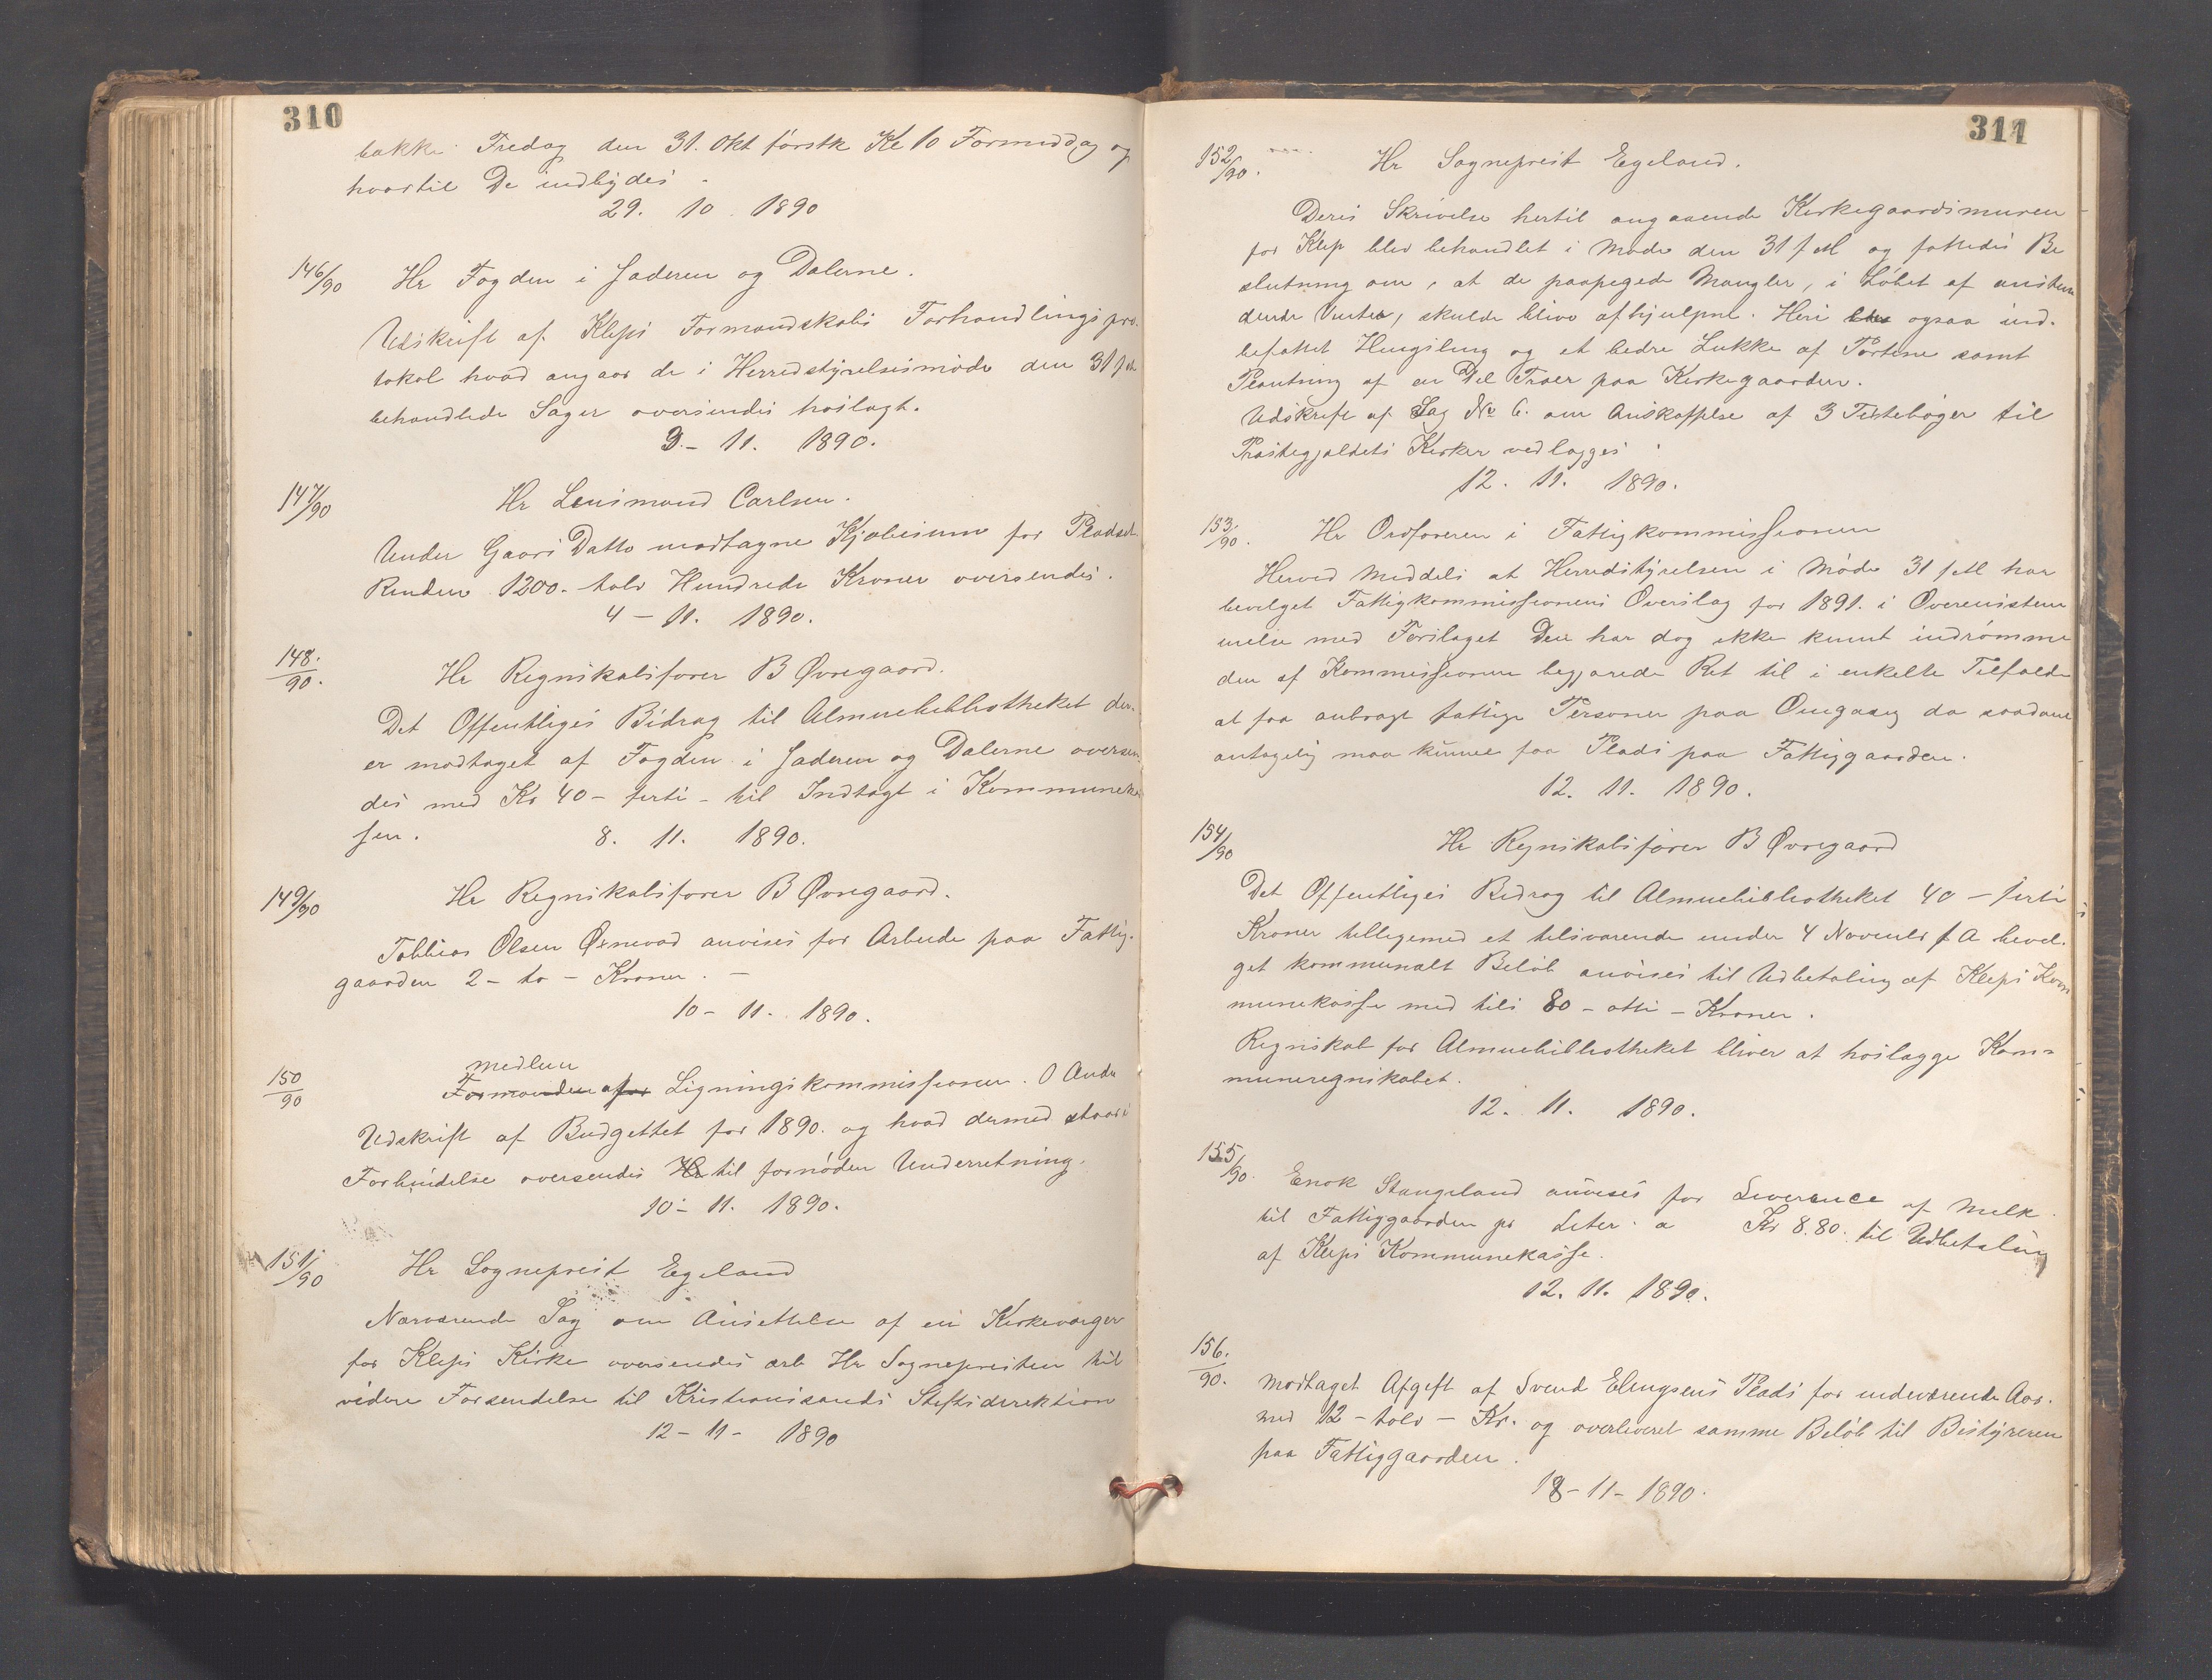 310
bakke Fredag den 31. Okt förstk Kl 10 Formiddag og
hvortil De indbydes.
29. 10. 1890
146/90 Hr Fogden i Jæderen og Dalerne.
Udskrift af Kleps Formandskabs Forhandlings pro-
tokol hvad angaar de i Herredstyrelsesmøde den 31 f M
behandlede Sager oversendes hoslagt.
3.- 11. 1890.
147/90 Hr Lensmand Carlsen.
Under Gaars Datto modtagne Kjøbesum for Pladsen
Renden 1200.- tolv Hundrede Kroner oversendes.
4 - 11. 1890.
148./90. Hr Regnskabsfører B Øvregaard.
Det Offentliges Bidrag til Almuebibliotheket der-
er modtaget af Fogden i Jæderen og Dalerne oversen-
des med Kr 40 - førti - til Indtægt i Kommuneka
ssen. 8. 11. 1890.
149/90 Hr Regnskabsfører B Øvregaard.
Tobbias Olsen Øxnevad anvises for Arbeide paa Fattig-
gaarden 2 - to - Kroner. -
10 - 11. 1890.
medlem
150/90 Formanden af for Ligningskommissionen. O Anda
Udskrift af Budgettet for 1890. og hvad dermed staar i
Forbindelse oversendes Hr til fornøden Underretning.
10 - 11. 1890.
151/90 Hr Sogneprest Egeland
Nærværende Sag om Ansettelse af en Kirkeværger
for Kleps Kirke oversendes ærb Hr Sognepresten til
videre Forsendelse til Kristianssands Stiftsdirektion
12 - 11 - 1890
311
152/90. Hr Sogneprest Egeland.
Deres Skrivelse hertil angaaende Kirkegaardsmuren
for Klep blev behandlet i Møde den 31 f M og fattedes Be
slutning om, at de paapegede Mangler, i Løbet af anstun
dende Vinter, skulde blive afhjulpne. Heri blev ogsaa ind-
befattet Hengsling og et bedre Lukke af Portene samt
Plantning af en Del Træer paa Kirkegaarden.
Udskrift af Sag No 6. om Anskaffelse af 3 Textebøger til
Præstegjeldets Kirker vedlægges.
12. 11. 1890.
153./90. Hr Ordføreren i Fattigkommissionen
Herved meddels at Herredstyrelsen i Møde 31 f M har
bevilget Fattigkommissionens Overslag for 1891. i Overensstem
melse med Forslaget Den har dog ikke kunnet indrømme
den af Kommissionen begjærede Ret til i enkelte Tilfælde
at faa anbragt fattige Personer paa Omgang da saadane
antagelig maa kunne faa Plads paa Fattiggaarden.
12. 11. 1890.
154/90 Hr Regnskabsfører B Øvregaard
Det Offentliges Bidrag til Almuebibliotheket 40 - førti
Kroner tilligemed et tilsvarende under 4 Novembr f A bevil-
get kommunalt Beløb anvises til Udbetaling af Kleps Kom
munekasse med tils 80 - otti - Kroner.
Regnskab for Almuebibliotheket bliver at hoslægge Kom-
muneregnskabet.
12. 11. 1890.
155/90. Enok Stangeland anvises for Leverance af Melk
til Fattiggaarden pr Liter a Kr 8.80. til Udbetaling
af Kleps Kommunekasse.
12. 11. 1890.
156./90. Modtaget Afgift af Svend Elingsens Plads for indeværende Aar.
med 12 - tolv - Kr. og overleveret samme Beløb til Bestyreren
paa Fattiggaarden.
18 - 11 - 1890.